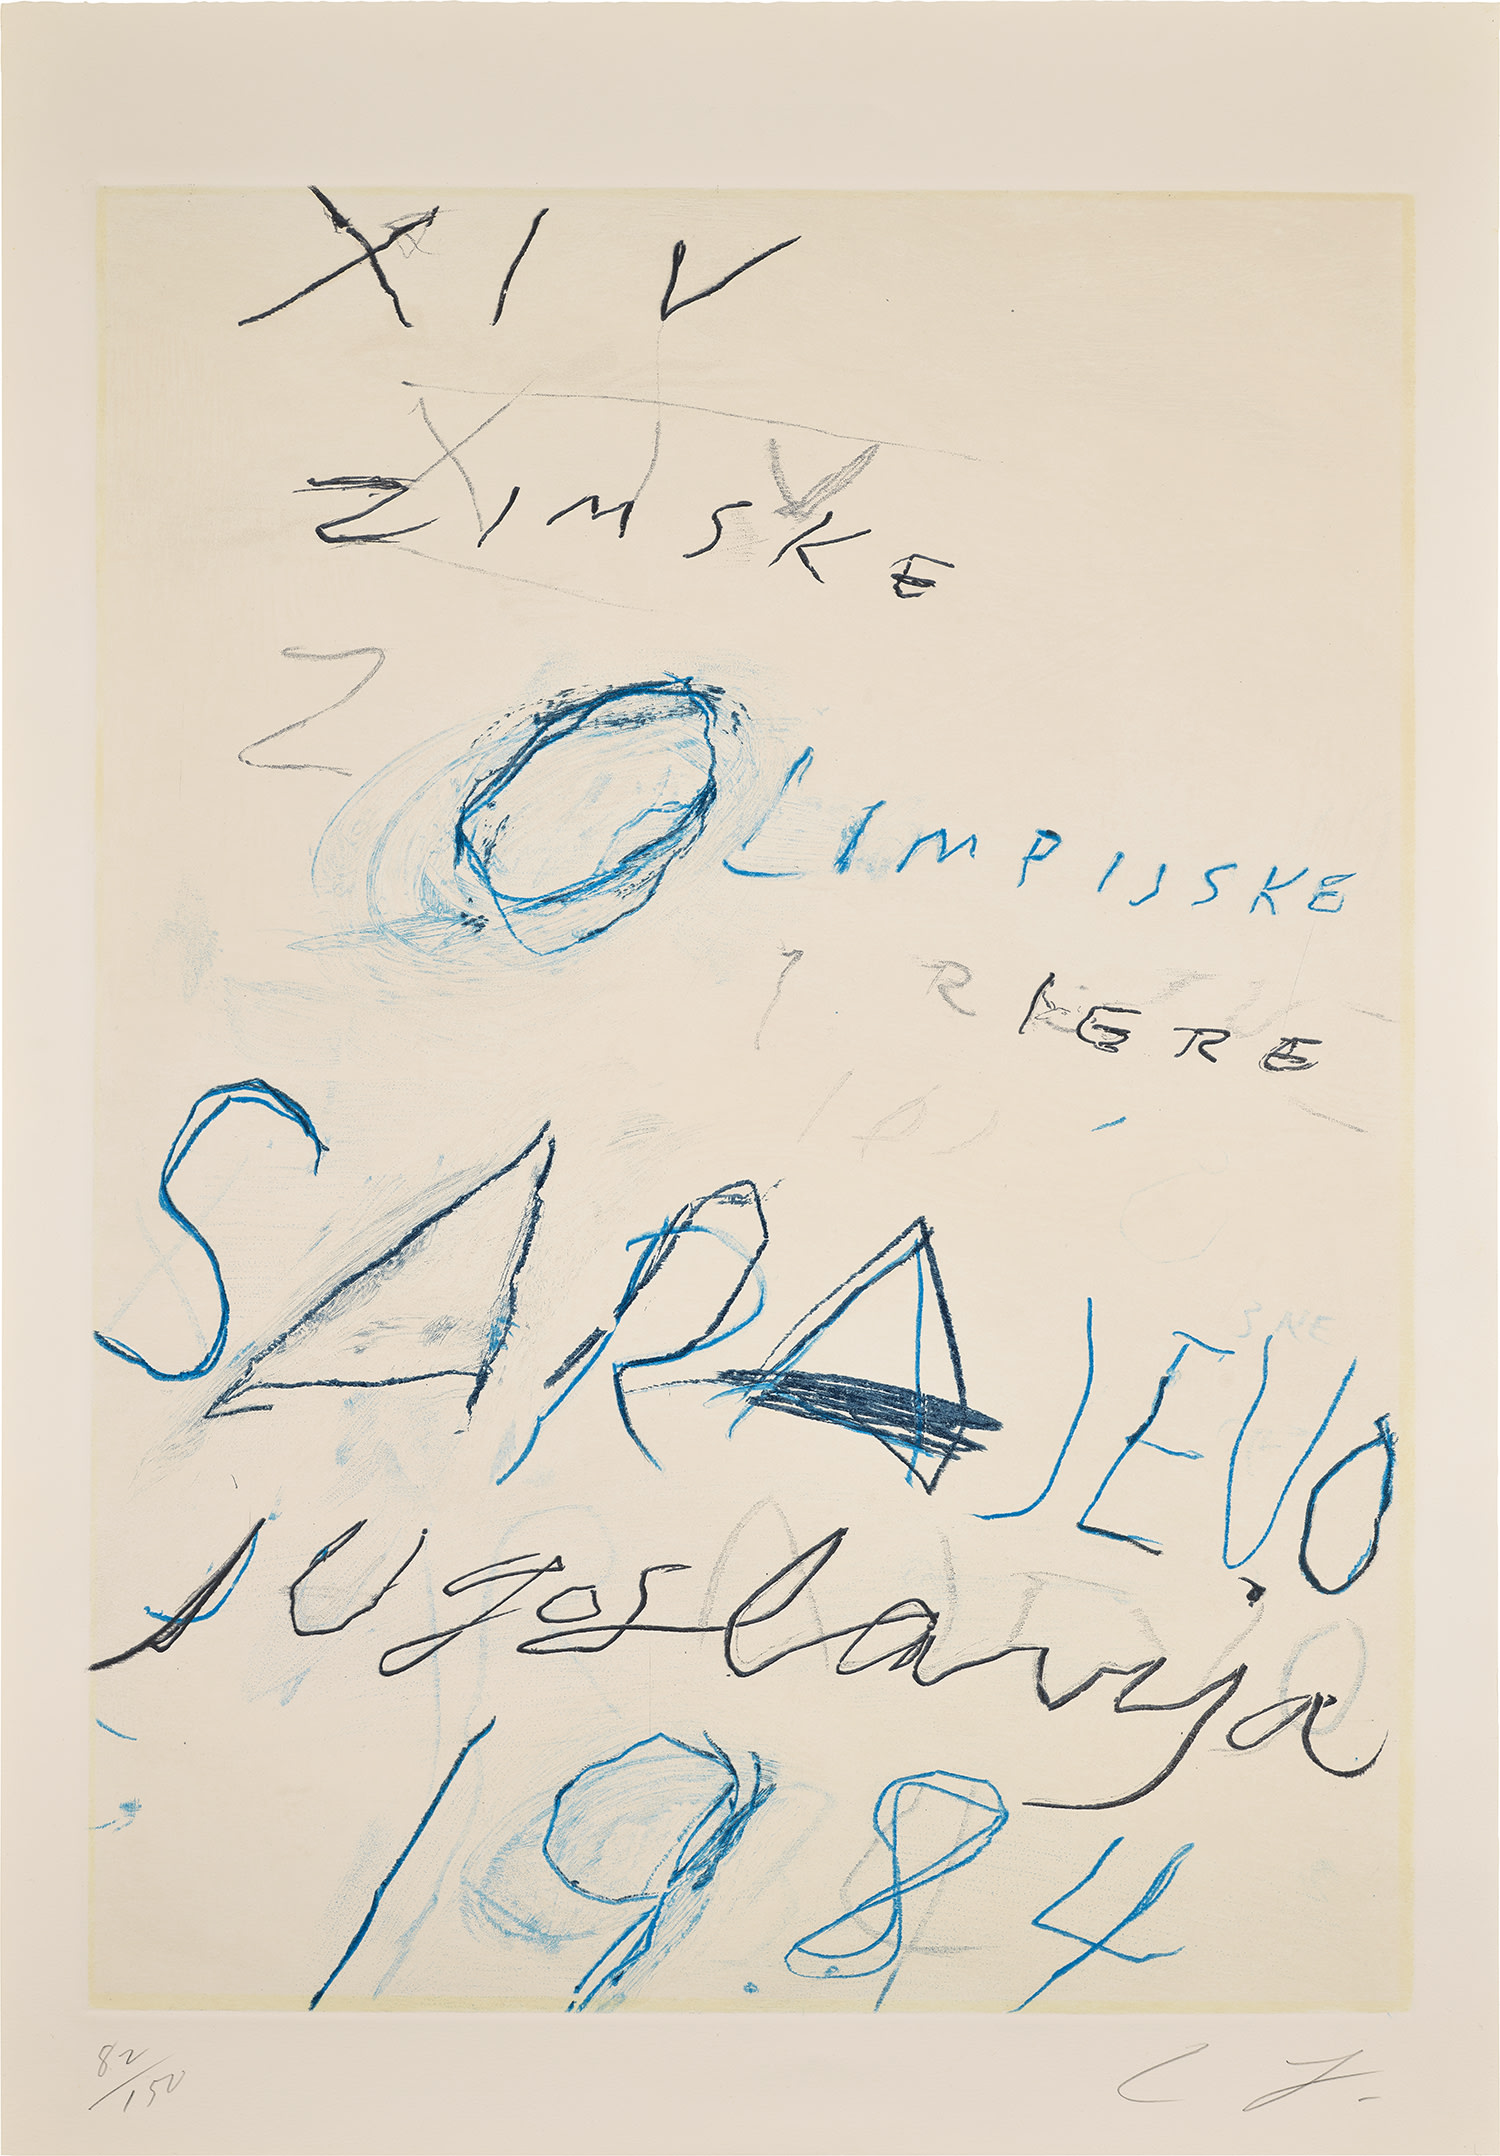 XIV
XIV
ZIMSKE
Z
OLIMPIJSKE
R IGRE
SARAJEVO
Jugoslavija
1984
82/150